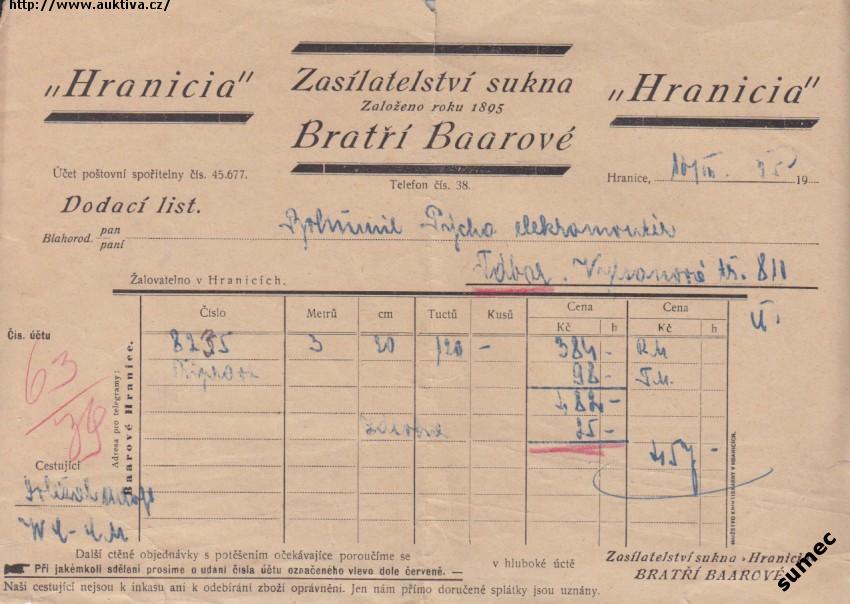 http://www.auktiva.cz/
"Hranicia"
Zasílatelství sukna
Založeno roku 1895
Bratří Baarové
"Hranicia"
Účet poštovní spořitelny čís. 45.677.
Telefon čís. 38.
Hranice, 35 19
Dodací list.
Blahorod. pan
paní
Bohumil Pýcha elektromontér
Tábor. tř. 811
Žalovatelno v Hranicích.
Čís. účtu
63/39
Adresa pro telegramy:
Baarové Hranice.
Číslo Metrů cm Tuctů Kusů Cena Cena
Kč h Kč h
8235 3 20 120 — 384 —
98 —
482 —
25 —
457 —
Cestující
Další ctěné objednávky s potěšením očekávajíce poroučíme se
v hluboké úctě
Při jakémkoli sdělení prosíme o udání čísla účtu označeného vlevo dole červeně. —
Naši cestující nejsou k inkasu ani k odebírání zboží oprávnění. Jen nám přímo doručené splátky jsou uznány.
Zasílatelství sukna »Hranicia
BRATŘÍ BAAROVÉ
sumec